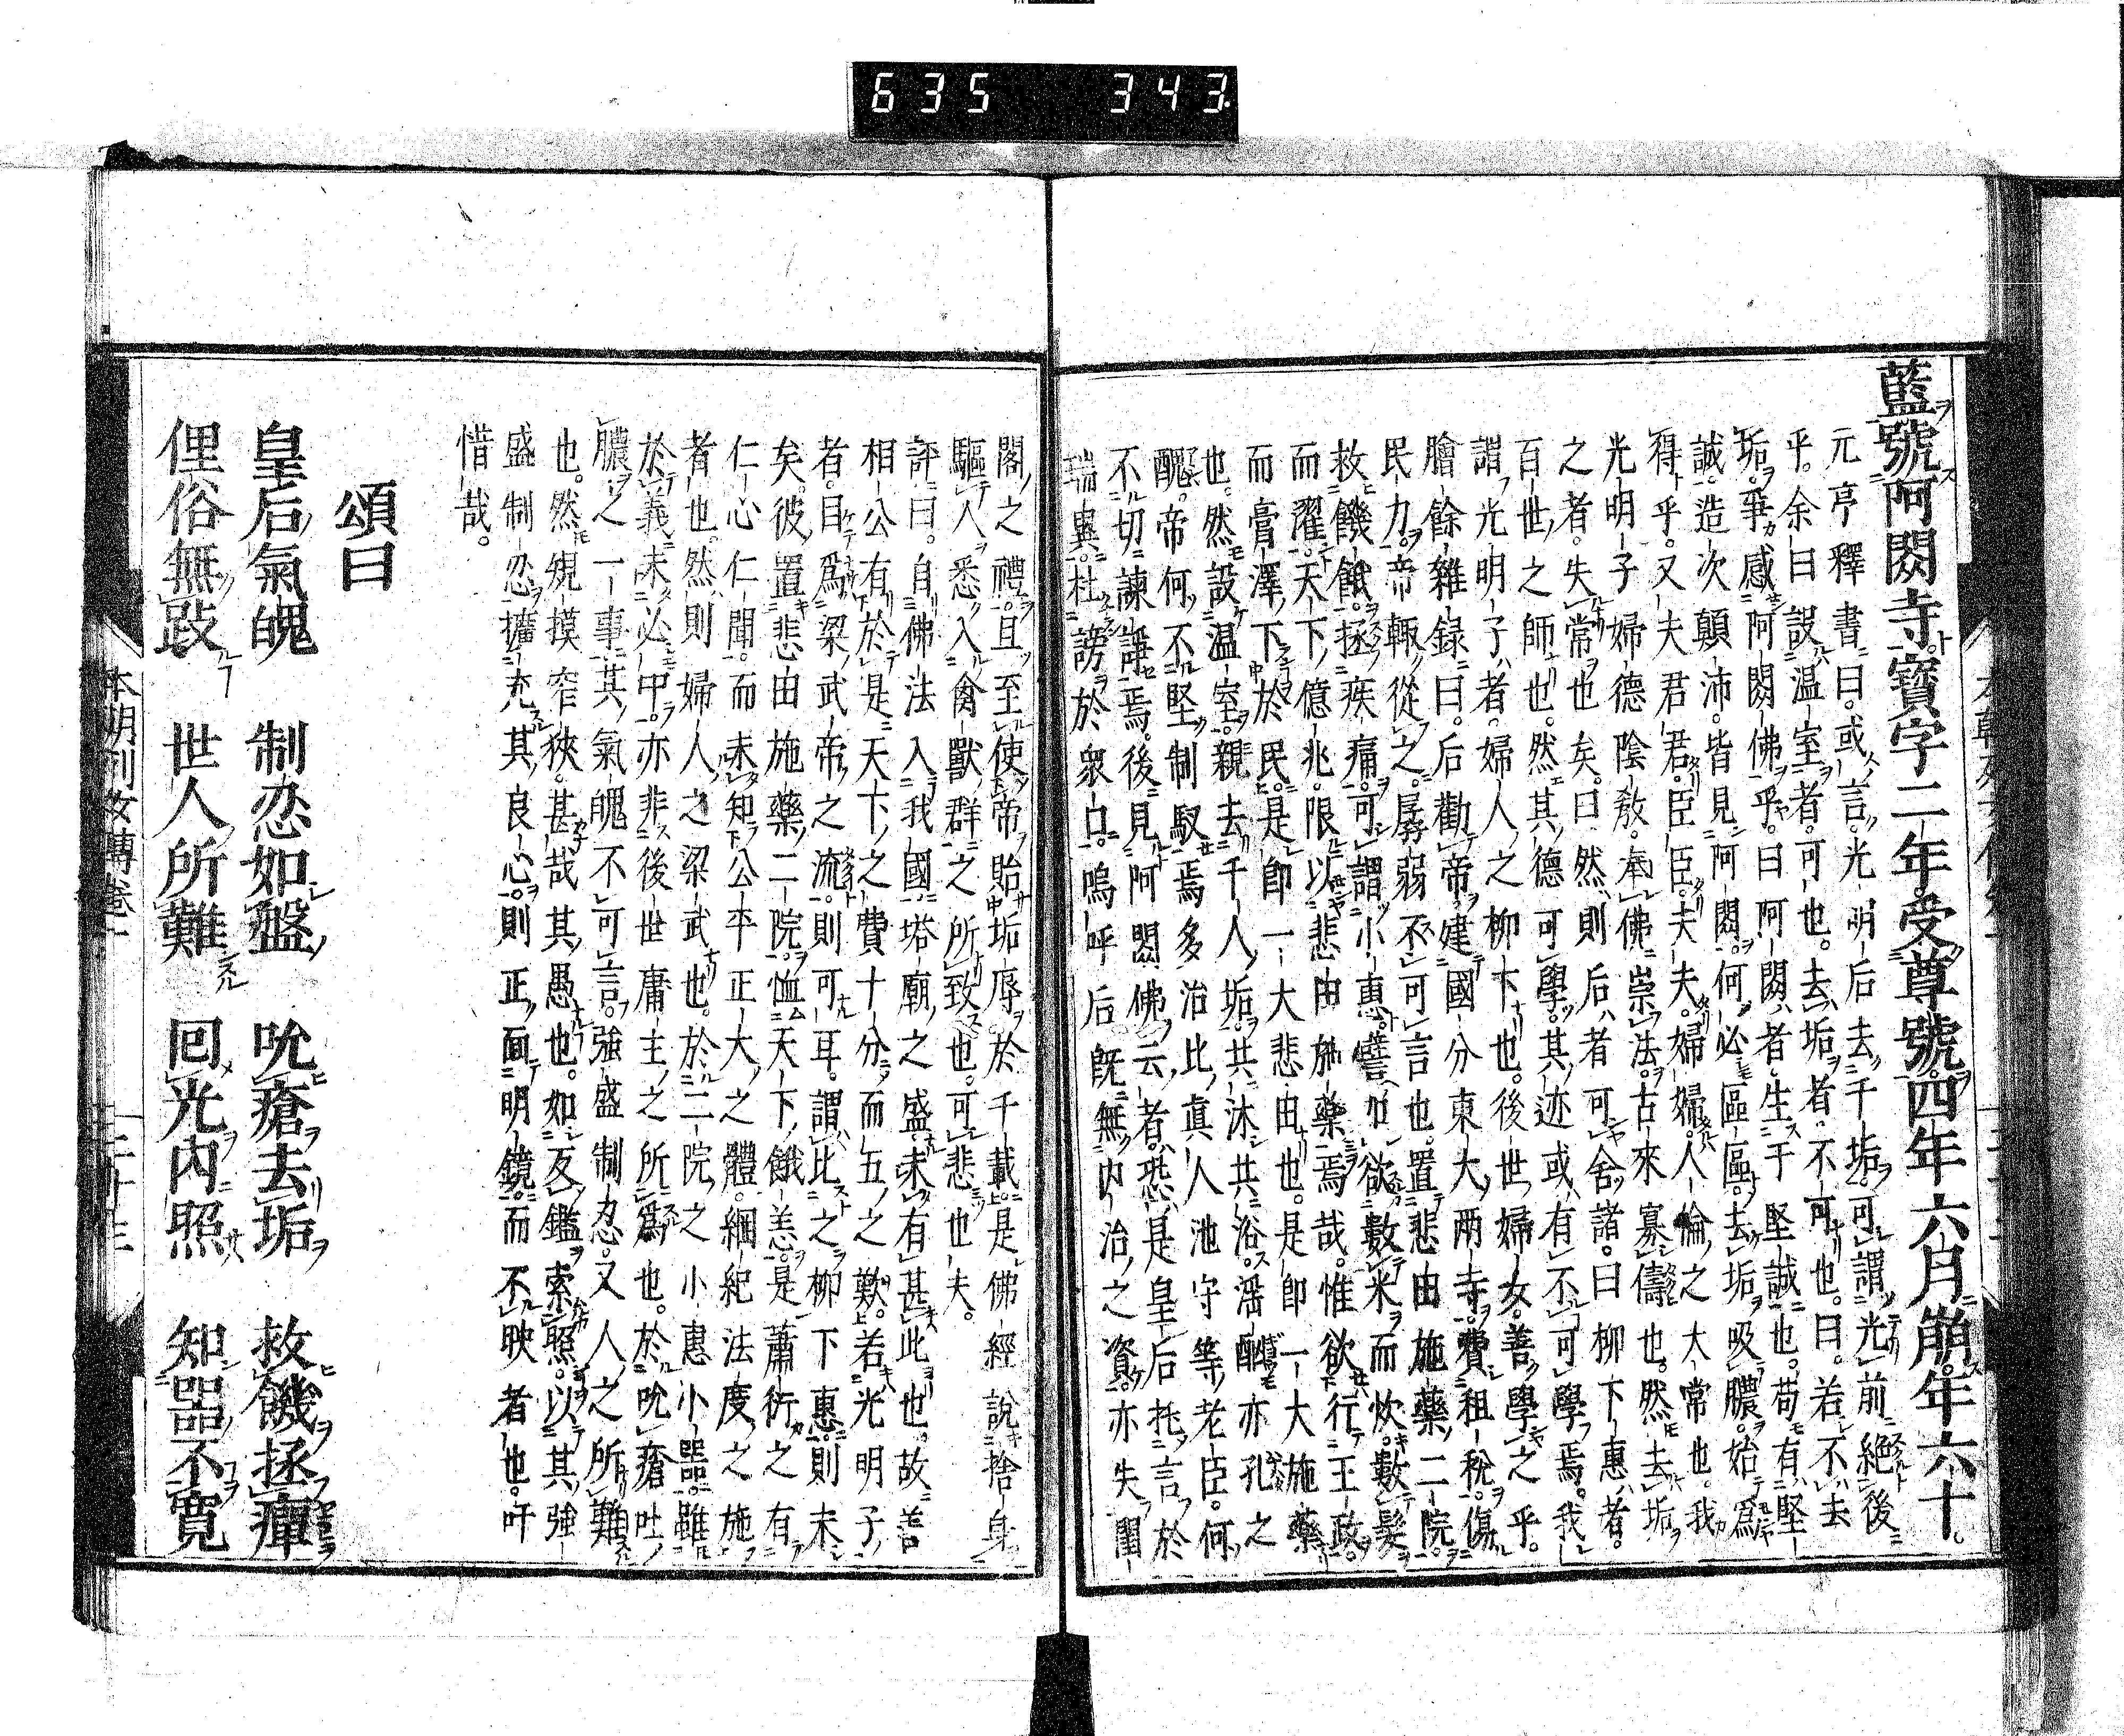 635 343
藍號阿閦寺。寶字二年。受尊號。四年六月崩。年六十。
元亨釋書曰。或言。光明后去千垢。可謂光前絶後
乎。余曰。設温室者。可也。去垢者。不可也。曰。若不去
垢。爭感阿閦佛乎。曰。阿閦者。生于堅誠也。苟有堅
誠。造次顛沛。皆見阿閦。何必區區去垢。吸膿。始爲
得乎。又夫君君。臣臣。夫夫。婦婦。人倫之大常也。我
光明子婦德陰敎。奉佛崇法。古來寡儔也。然去垢
之者。失常也矣。曰。然則后者可舍諸。曰柳下惠者。
百世之師也。然其德可學。其迹或有不可學焉。我
謂光明子者。婦人之柳下也。後世婦女。善學之乎。
膾餘雜録曰。后勸帝。建國分東大兩寺。費租税。傷
民力。帝輙從之。孱弱不可言也。置悲田施藥二院。
救饑餓。拯疾痛。可謂小惠。譬如欲數米而炊。數髮
而濯。天下億兆。限以悲田施藥焉哉。惟欲行王政。
而膏澤下於民。是即一大悲田也。是即一大施藥
也。然設温室。親去千人垢。共沐共浴。滛醜亦孔之
醜。帝何不堅制馭焉。多治比眞人池守等老臣。何
不切諫諍焉。後見阿閦佛云者。恐是皇后托言於
瑞異。杜謗於衆口。嗚呼后既無内治之資。亦失閨
閣之禮。且至使帝貽垢辱於千載。是佛經説捨身
驅人。悉入禽獸群之所致也。可悲也夫。
評曰。自佛法入我國。塔廟之盛。未有甚此也。故善
相公有於是天下之費十分而五之歎。若光明子
者。目爲梁武帝之流。則可耳。謂比之柳下惠。則未
矣。彼置悲田施藥二院。恤天下餓恙。是蕭衍之有
仁心仁聞。而未知公平正大之體。綱紀法度之施
者也。然則婦人之梁武也。於二院之小惠小器。雖
於義未必中。亦非後世庸主之所爲也。於吮瘡吐
膿之一事。其氣魄不可言。強盛制忍。又人之所難
也。然規摸窄狹。甚哉其愚也。如反鑑索照。以其強
盛制忍。擴充其良心。則正面明鏡。而不映者也。吁
惜哉。
頌曰
皇后氣魄 制忍如盤 吮瘡去垢 救饑拯癉
俚俗無跂 世人所難 回光内照 知器不寛
本朝列女傳卷一